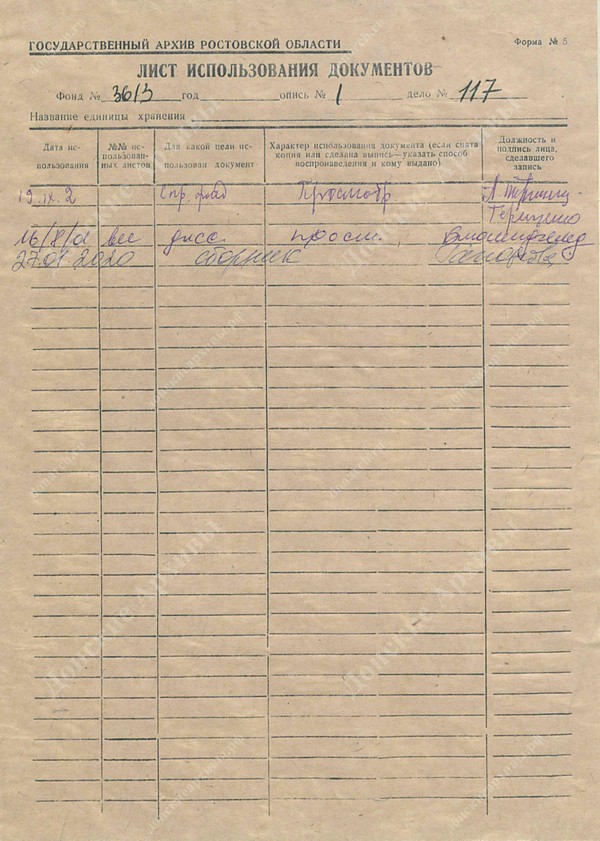 ГОСУДАРСТВЕННЫЙ АРХИВ РОСТОВСКОЙ ОБЛАСТИ
Форма № 5
ЛИСТ ИСПОЛЬЗОВАНИЯ ДОКУМЕНТОВ
Фонд № 3613 год опись № 1 дело № 117
Название единицы хранения
Дата использования
№№ использованных листов
Для какой цели использован документ
Характер использования документа (если снята копия или сделана выпись—указать способ воспроизведения и кому выдано)
Должность и подпись лица, сделавшего запись
19.IX.2 Просмотр
16/8/01 все дисс. просм.
2020 сборник
Донские Архивы
донскиеархивы.рф